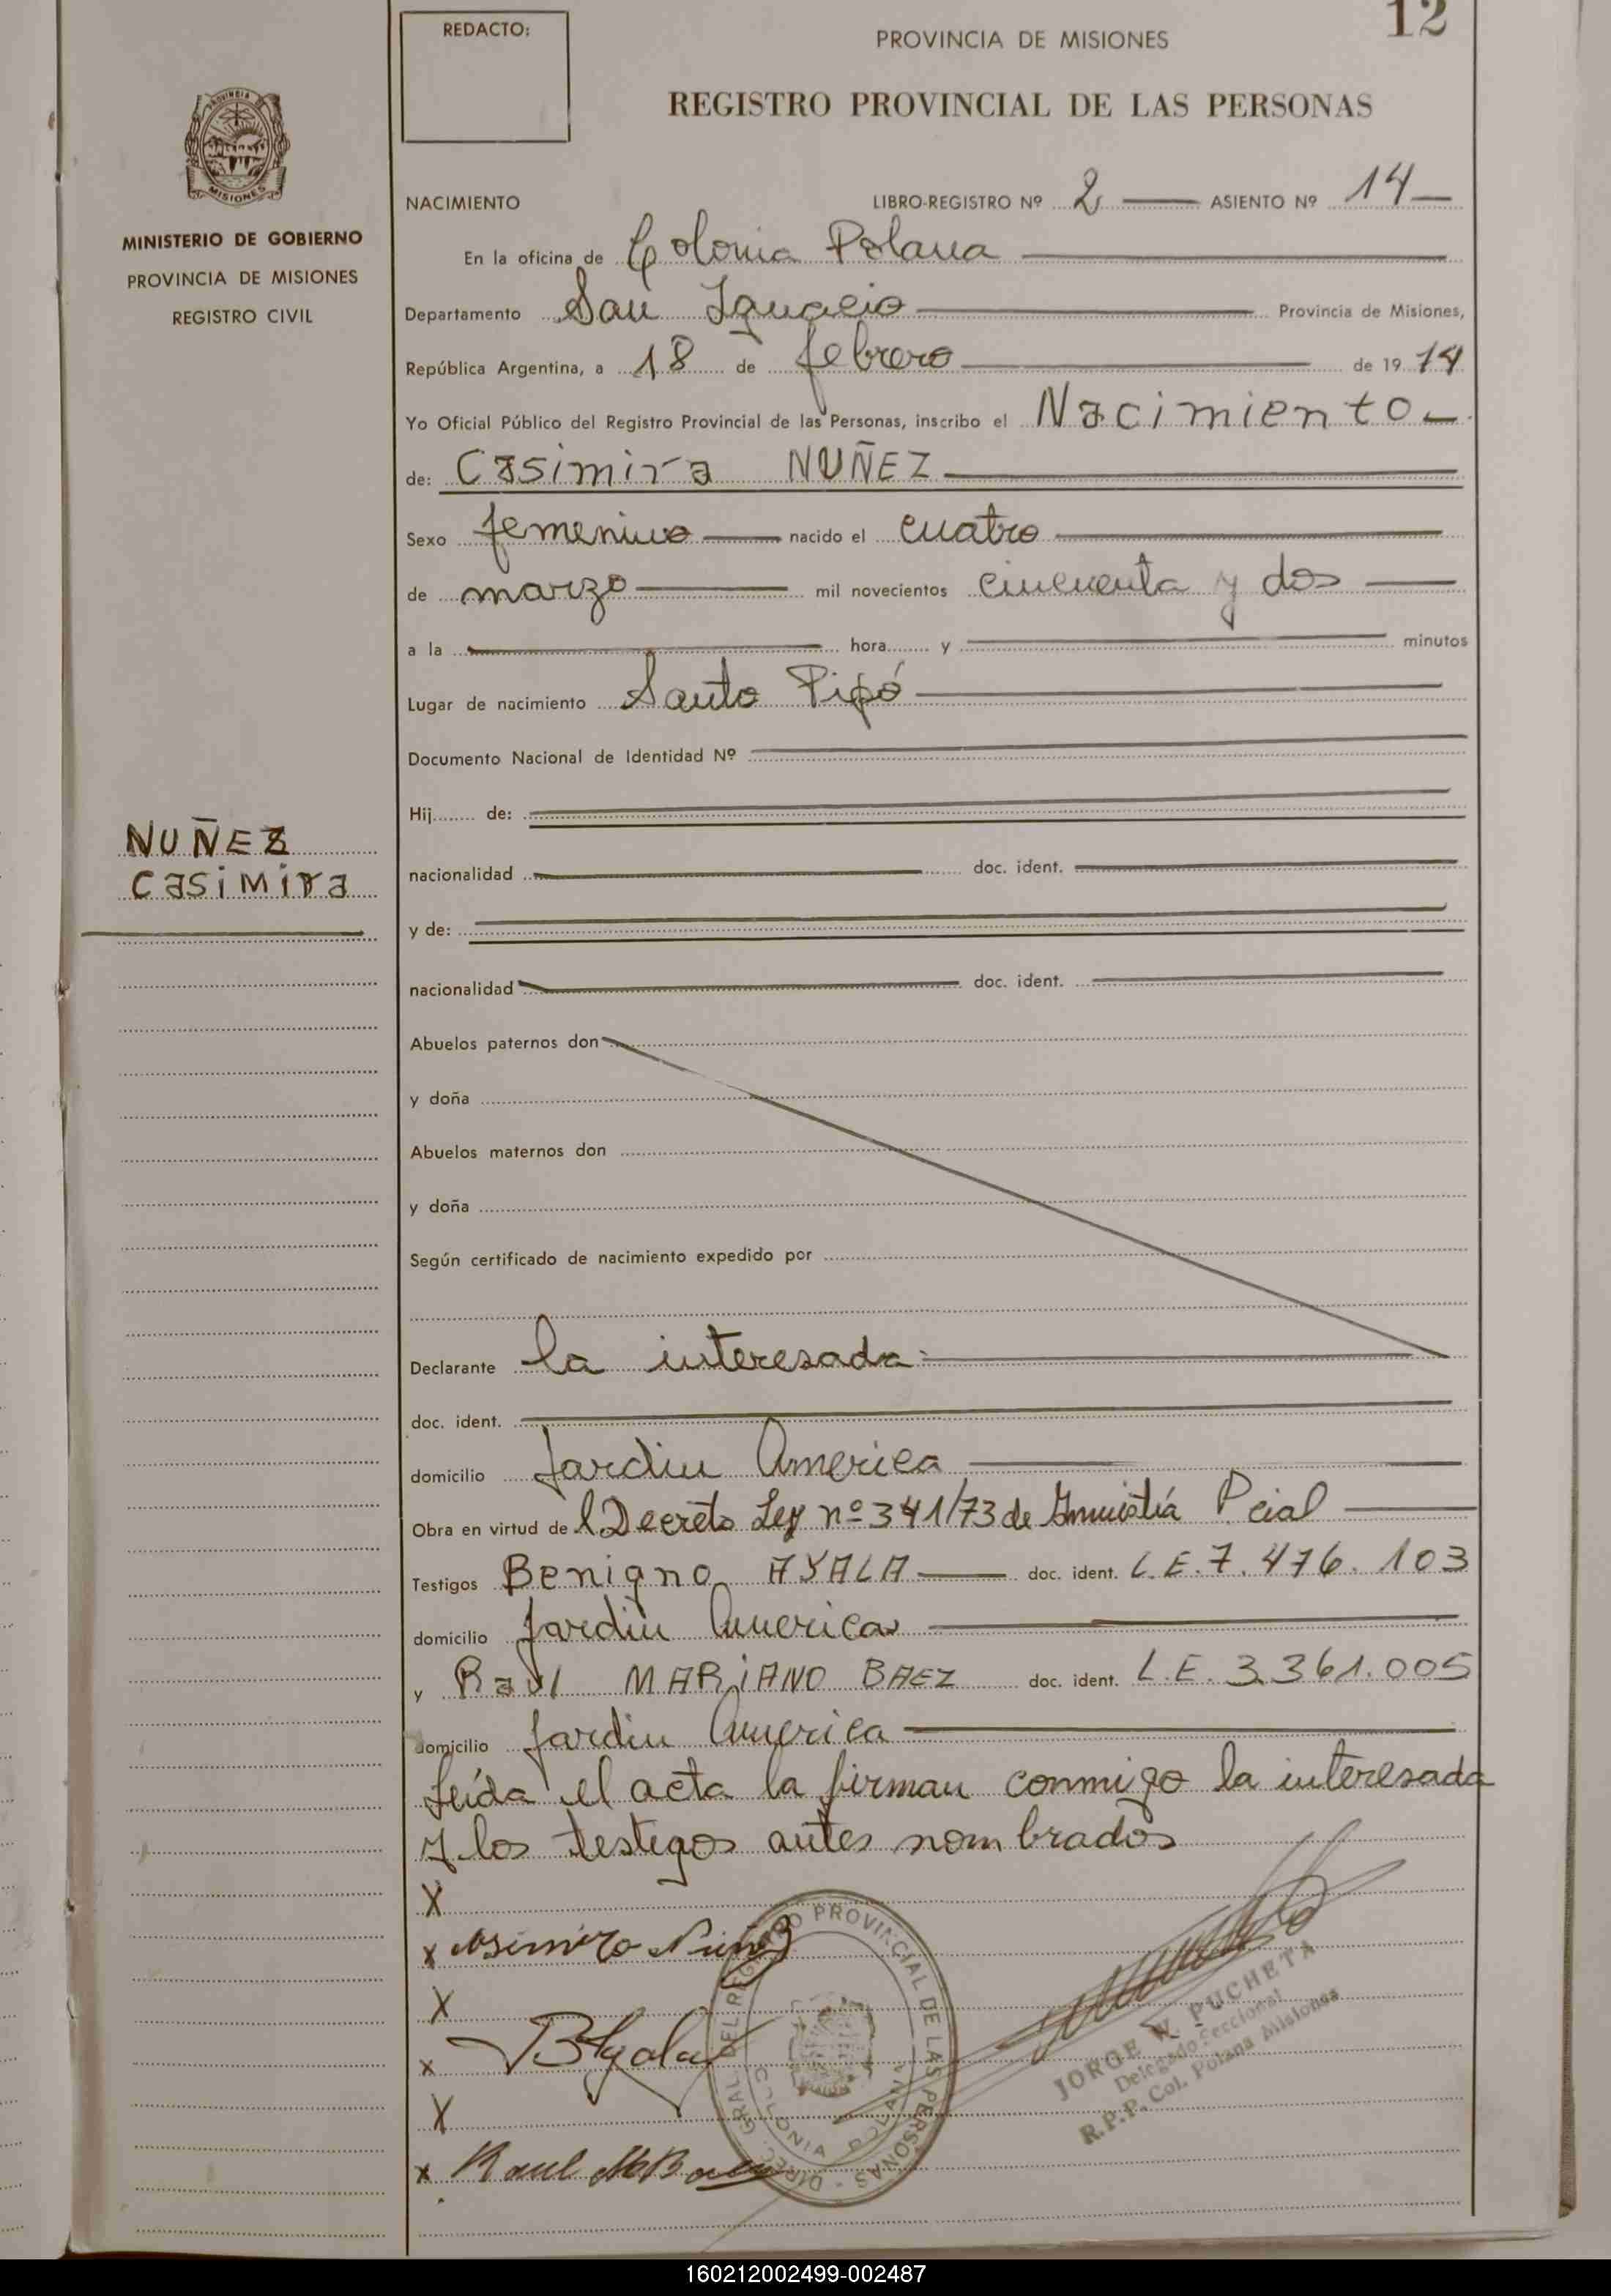 12
REDACTO:
PROVINCIA DE MISIONES
REGISTRO PROVINCIAL DE LAS PERSONAS
PROVINCIA
MISIONES
MINISTERIO DE GOBIERNO
PROVINCIA DE MISIONES
REGISTRO CIVIL
NUÑEZ
Casimira
NACIMIENTO LIBRO-REGISTRO Nº 2 ASIENTO Nº 14
En la oficina de Colonia Polana
Departamento San Ignacio Provincia de Misiones,
República Argentina, a 18 de febrero de 1974
Yo Oficial Público del Registro Provincial de las Personas, inscribo el Nacimiento
de: Casimira NUÑEZ
Sexo femenino nacido el cuatro
de marzo mil novecientos cincuenta y dos
a la hora y minutos
Lugar de nacimiento Santo Pipó
Documento Nacional de Identidad Nº
Hij de:
nacionalidad doc. ident.
y de:
nacionalidad doc. ident.
Abuelos paternos don
y doña
Abuelos maternos don
y doña
Según certificado de nacimiento expedido por
Declarante la interesada
doc. ident.
domicilio Jardin America
Obra en virtud del Decreto Ley nº 341/73 de Amnistía Pcial
Testigos Benigno AYALA doc. ident. L.E. 7.476.103
domicilio Jardin America
y Raul MARIANO BAEZ doc. ident. L.E. 3.361.005
domicilio Jardin America
Leída el acta la firman conmigo la interesada
y los testigos antes nombrados
X
x Nuñez
X
x BAyala
X
x Raul M Baez
DIREC. GRAL. DEL REGISTRO PROVINCIAL DE LAS PERSONAS
COLONIA POLANA
JORGE W. PUCHETA
Delegado Seccional
R.P.P. Col. Polana Misiones
160212002499-002487